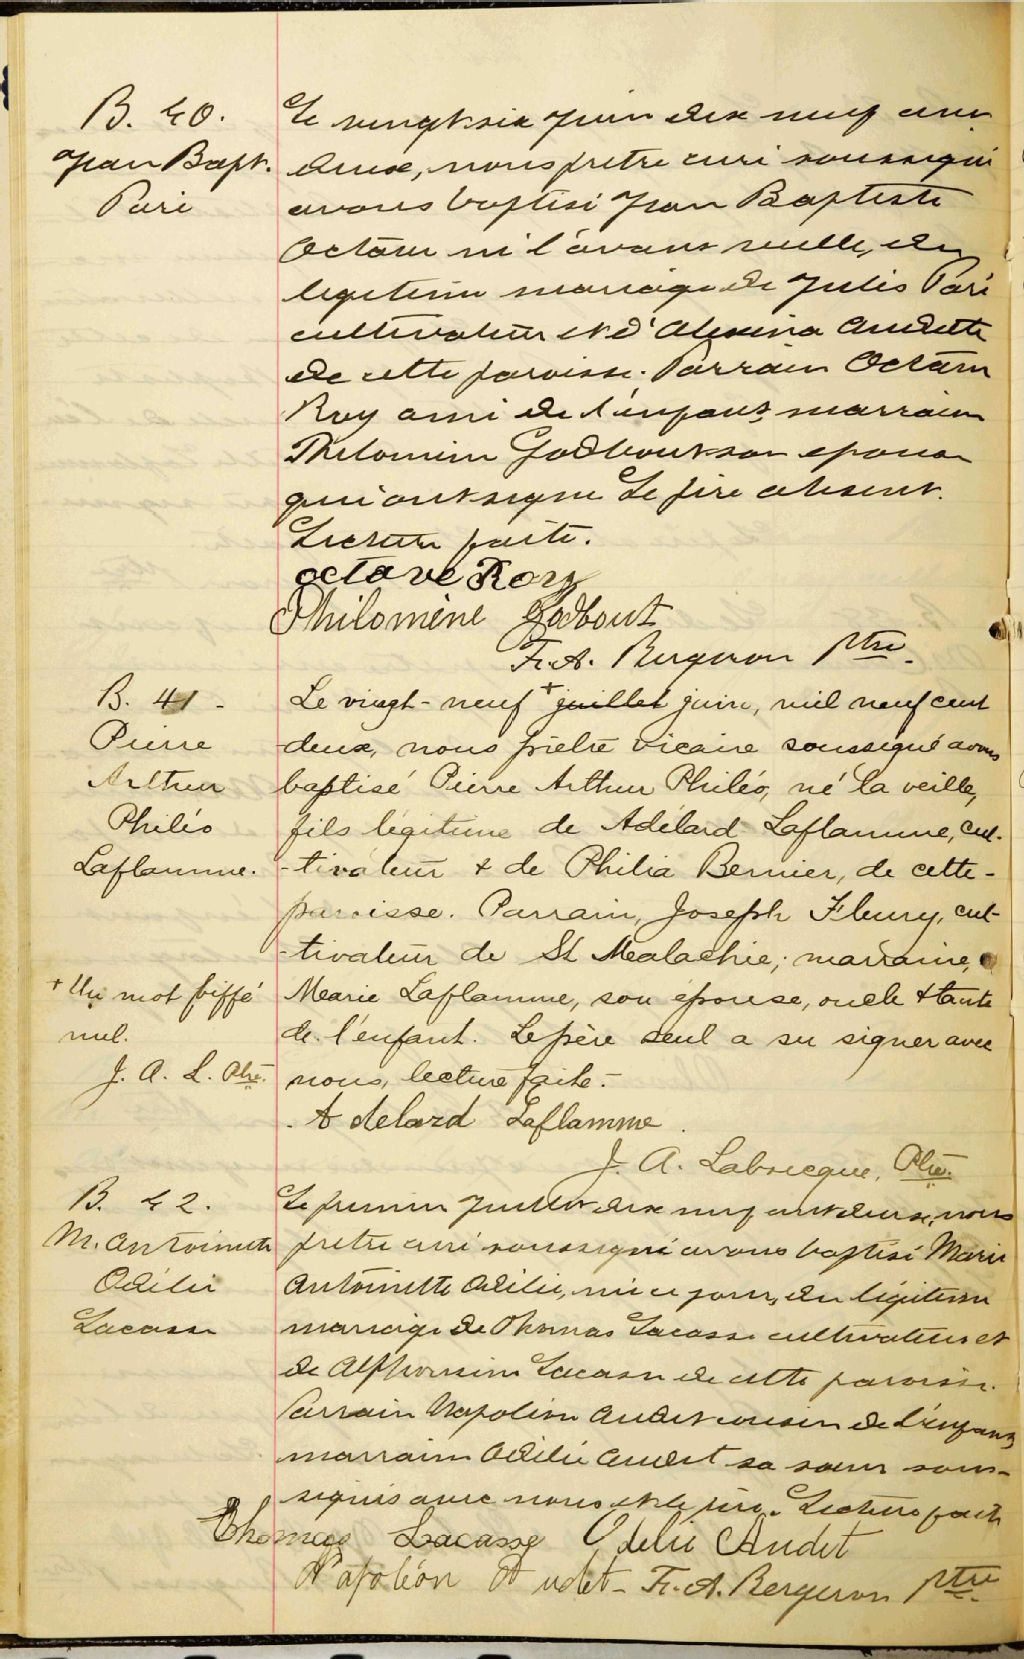 B. 40.
Jean Bapt.
Paré
Le vingt six juin dix neuf cent
deux, nous prêtre curé soussigné
avons baptisé Jean Baptiste
Octave né l'avant veille, du
légitime mariage de Jules Paré
cultivateur et d'Alexina Audette
de cette paroisse. Parrain Octave
Roy ami de l'enfant, marraine
Philomène Godbout son épouse
qui ont signé Le père absent.
Lecture faite.
octave Roy
Philomène Godbout
F. A. Bergeron Ptre.
B. 41 -
Pierre
Arthur
Philéo
Laflamme.
Le vingt-neuf + juillet juin, mil neuf cent
deux, nous prêtre vicaire soussigné avons
baptisé Pierre Arthur Philéo, né la veille,
fils légitime de Adélard Laflamme, cul-
-tivateur & de Philia Bernier, de cette-
paroisse. Parrain, Joseph Fleury, cul-
-tivateur de St Malachie; marraine,
Marie Laflamme, son épouse, oncle & tante
de l'enfant. Le père seul a su signer avec
nous, lecture faite.-
+ Un mot biffé
nul.
J. A. L. Ptre.
Adelard Laflamme.
J. A. Labrecque, Ptre.
B. 42.
M. Antoinette
Odélie
Lacasse
Le premier Juillet dix neuf cent deux, nous
prêtre curé soussigné avons baptisé Marie
Antoinette Odélie, née ce jour, du légitime
mariage de Thomas Lacasse cultivateur et
de Alphonsine Lacasse de cette paroisse.
Parrain Napoléon Audet cousin de l'enfant,
marraine Odélie Audet sa sœur sous-
signés avec nous et le père. Lecture faite
Thomas Lacasse Odelie Audet
Napoléon Audet - F. A. Bergeron Ptre.